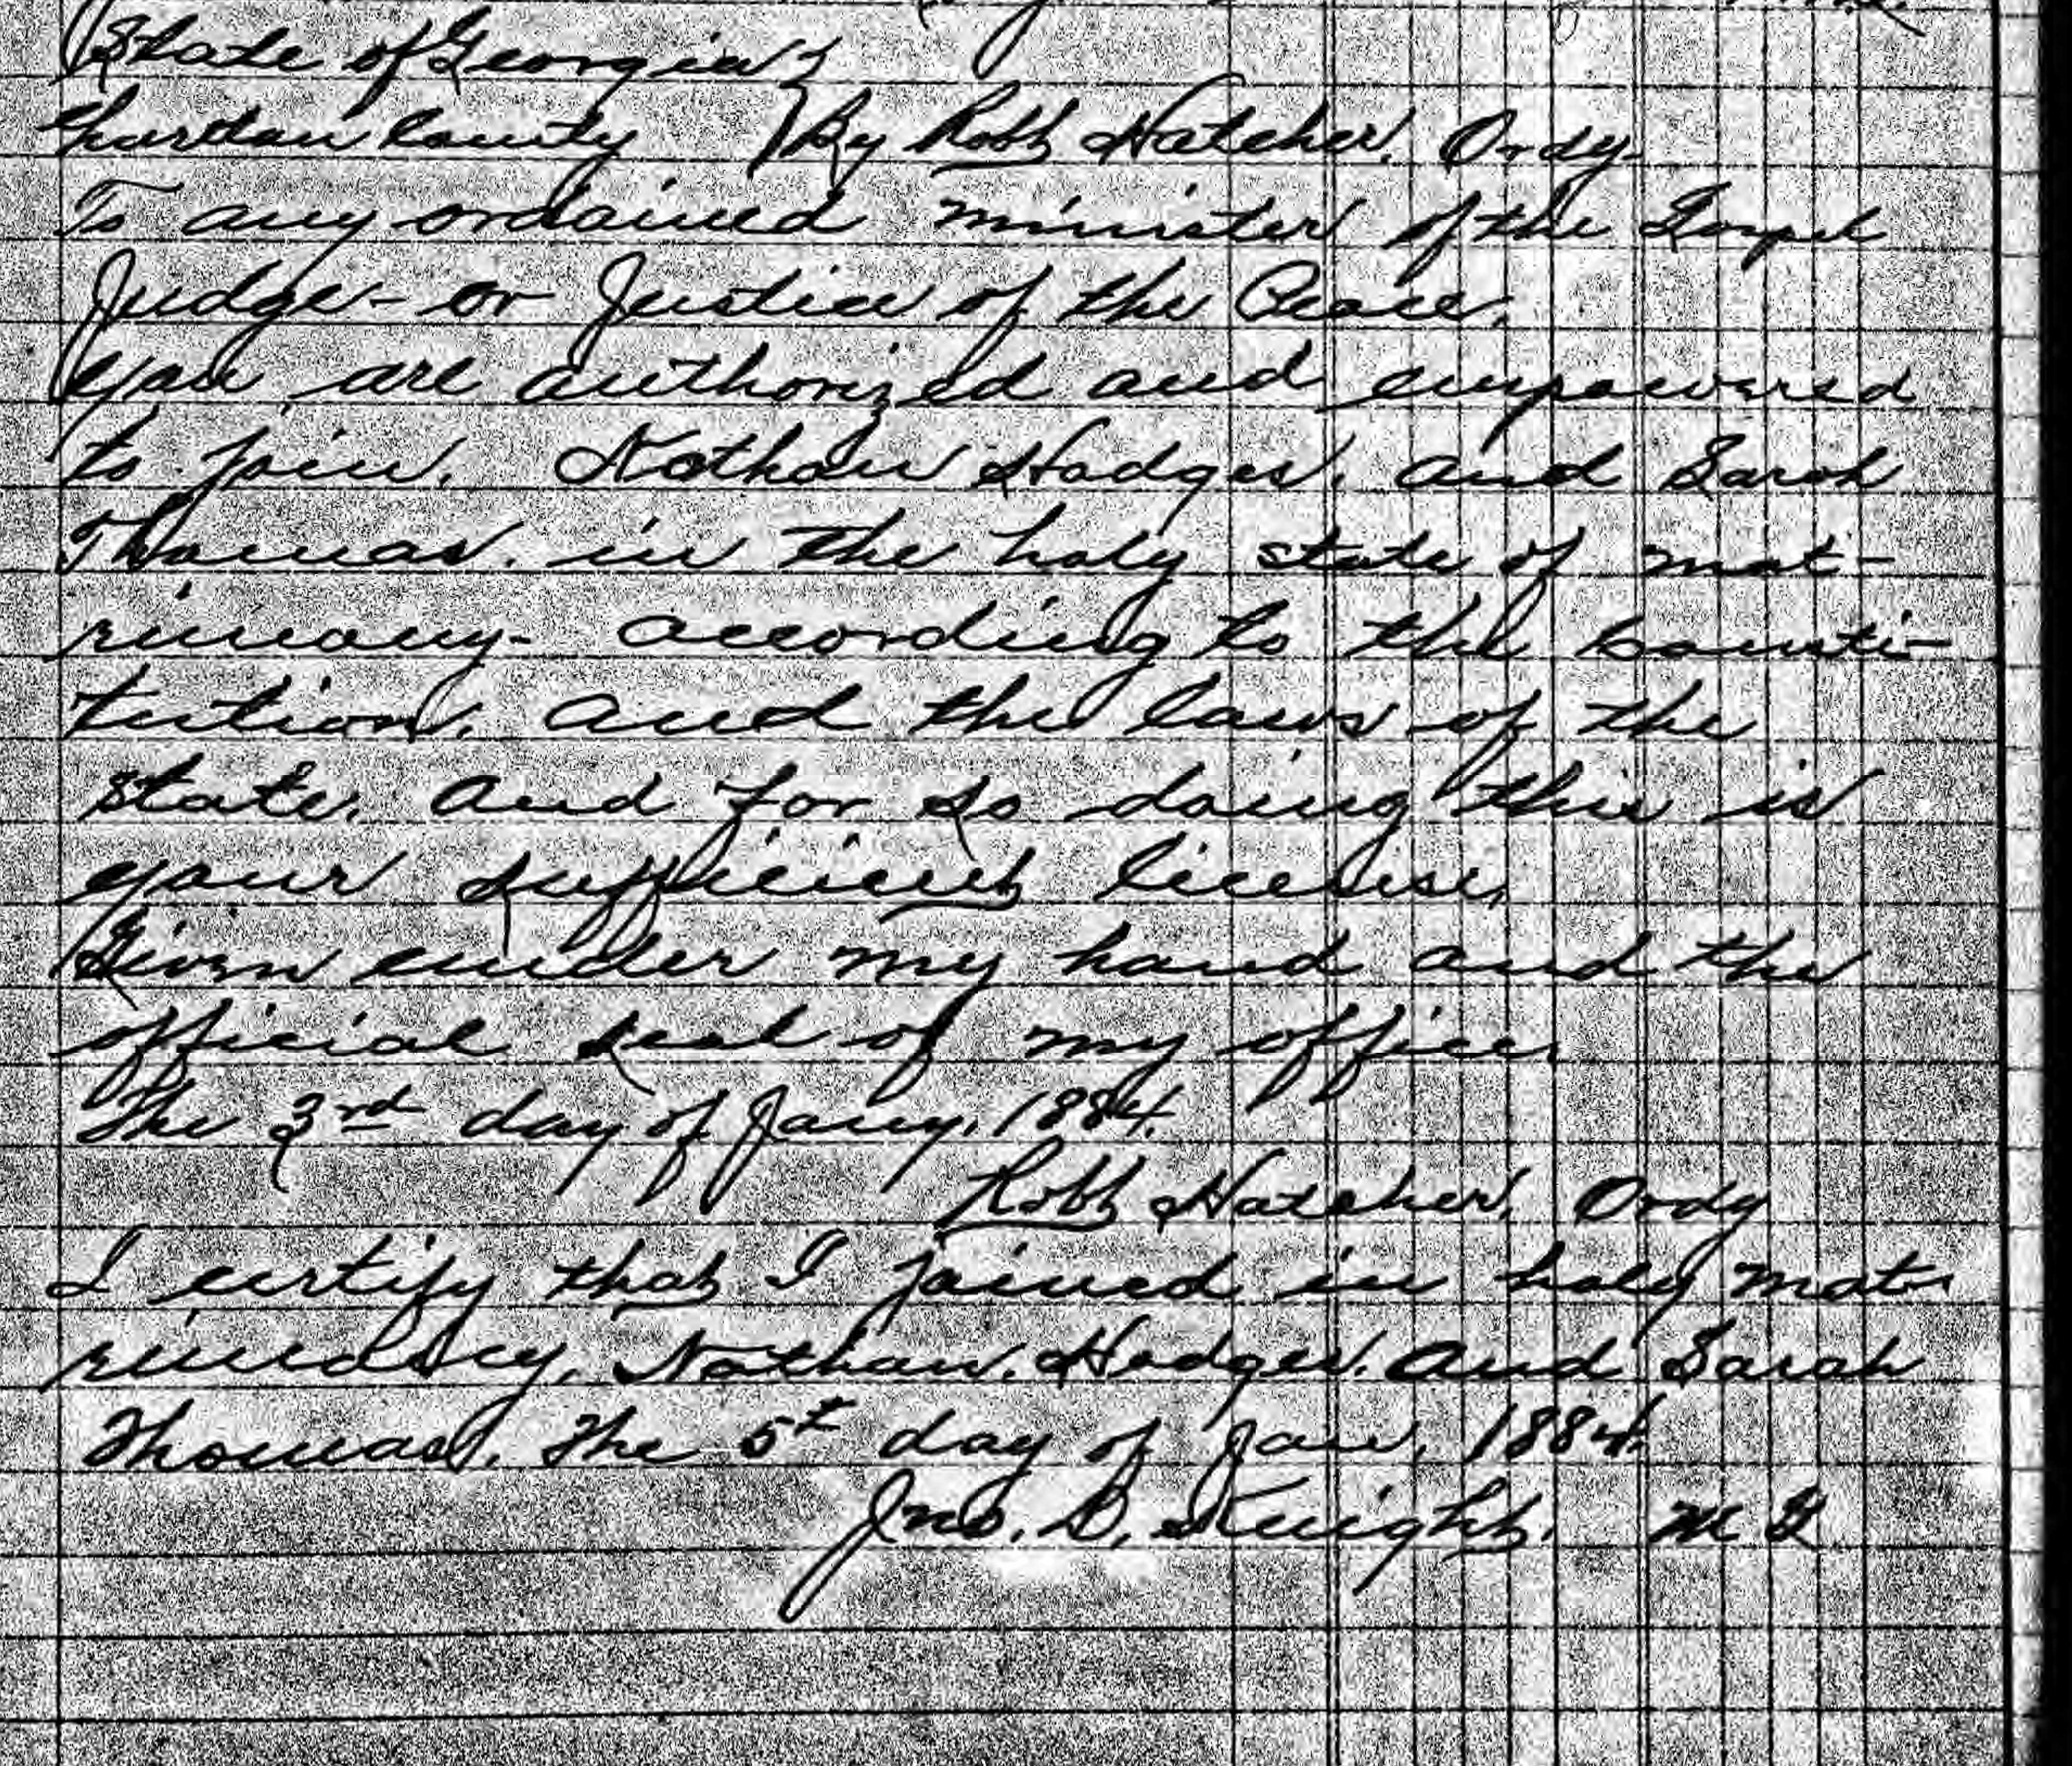 State of Georgia
County By Robt Hatcher. Ordy.
To any ordained minister of the Gospel
Judge - or Justice of the Peace.
you are authorized and empowered
to join. Nathan Hodges. and Sarah
Thomas. in the holy state of mat-
rimony - according to the consti-
tution. and the laws of the
state. and for so doing this is
your sufficient license.
Given under my hand and the
official seal of my office.
the 3rd day of Jany. 1884.
Robt Hatcher. Ordy
I certify that I joined in holy mat-
rimony. Nathan. Hodges. and Sarah
Thomas. the 5th day of Jan. 1884.
Jno. D. Knight. M G